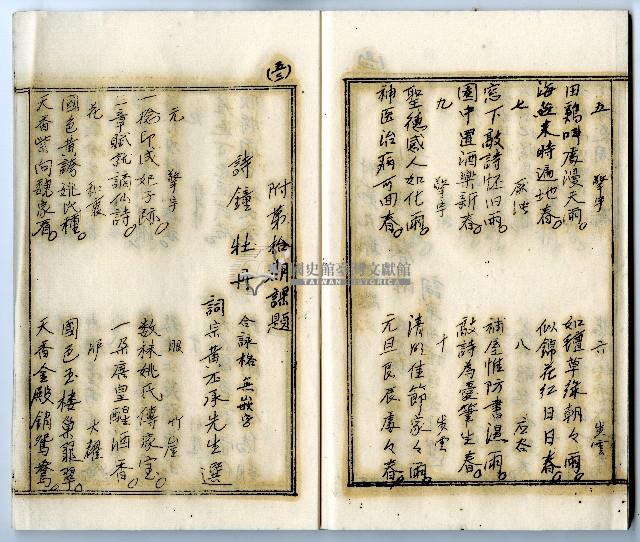 五 擎宇
田鷄呌處漫天雨。
海燕來時遍地春。
七
窓下敲詩怀旧雨
園中置酒樂新春。
九 擎宇
聖德感人如化雨。
神医治病可回春。
六 步雲
如 草綠朝々雨。
似錦花紅日日春。
八
補屋惟防書濕雨。
敲詩為愛筆生春。
十 步雲
清明佳節家々雨。
元旦良辰處々春。
附第拾期課題
詩鐘 牡丹 合詠格 無嵌字
詞宗黃丕承先生選
元 擎宇
一捻印成妃子跡。
三章賦就謫仙詩
花 和衷
國色黃誇姚氏種。
天香紫向魏家看。
眼 竹崖
數株姚氏傳家宝。
一朵唐皇醒酒香。
大耀
國色玉楼巢翡翠。
天香金殿鎖鴛鴦。
國史館臺灣文獻館
TAIWAN HISTORICA